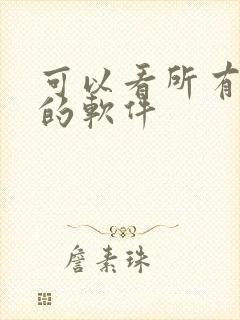 可以看所有
的軟件
詹素珠